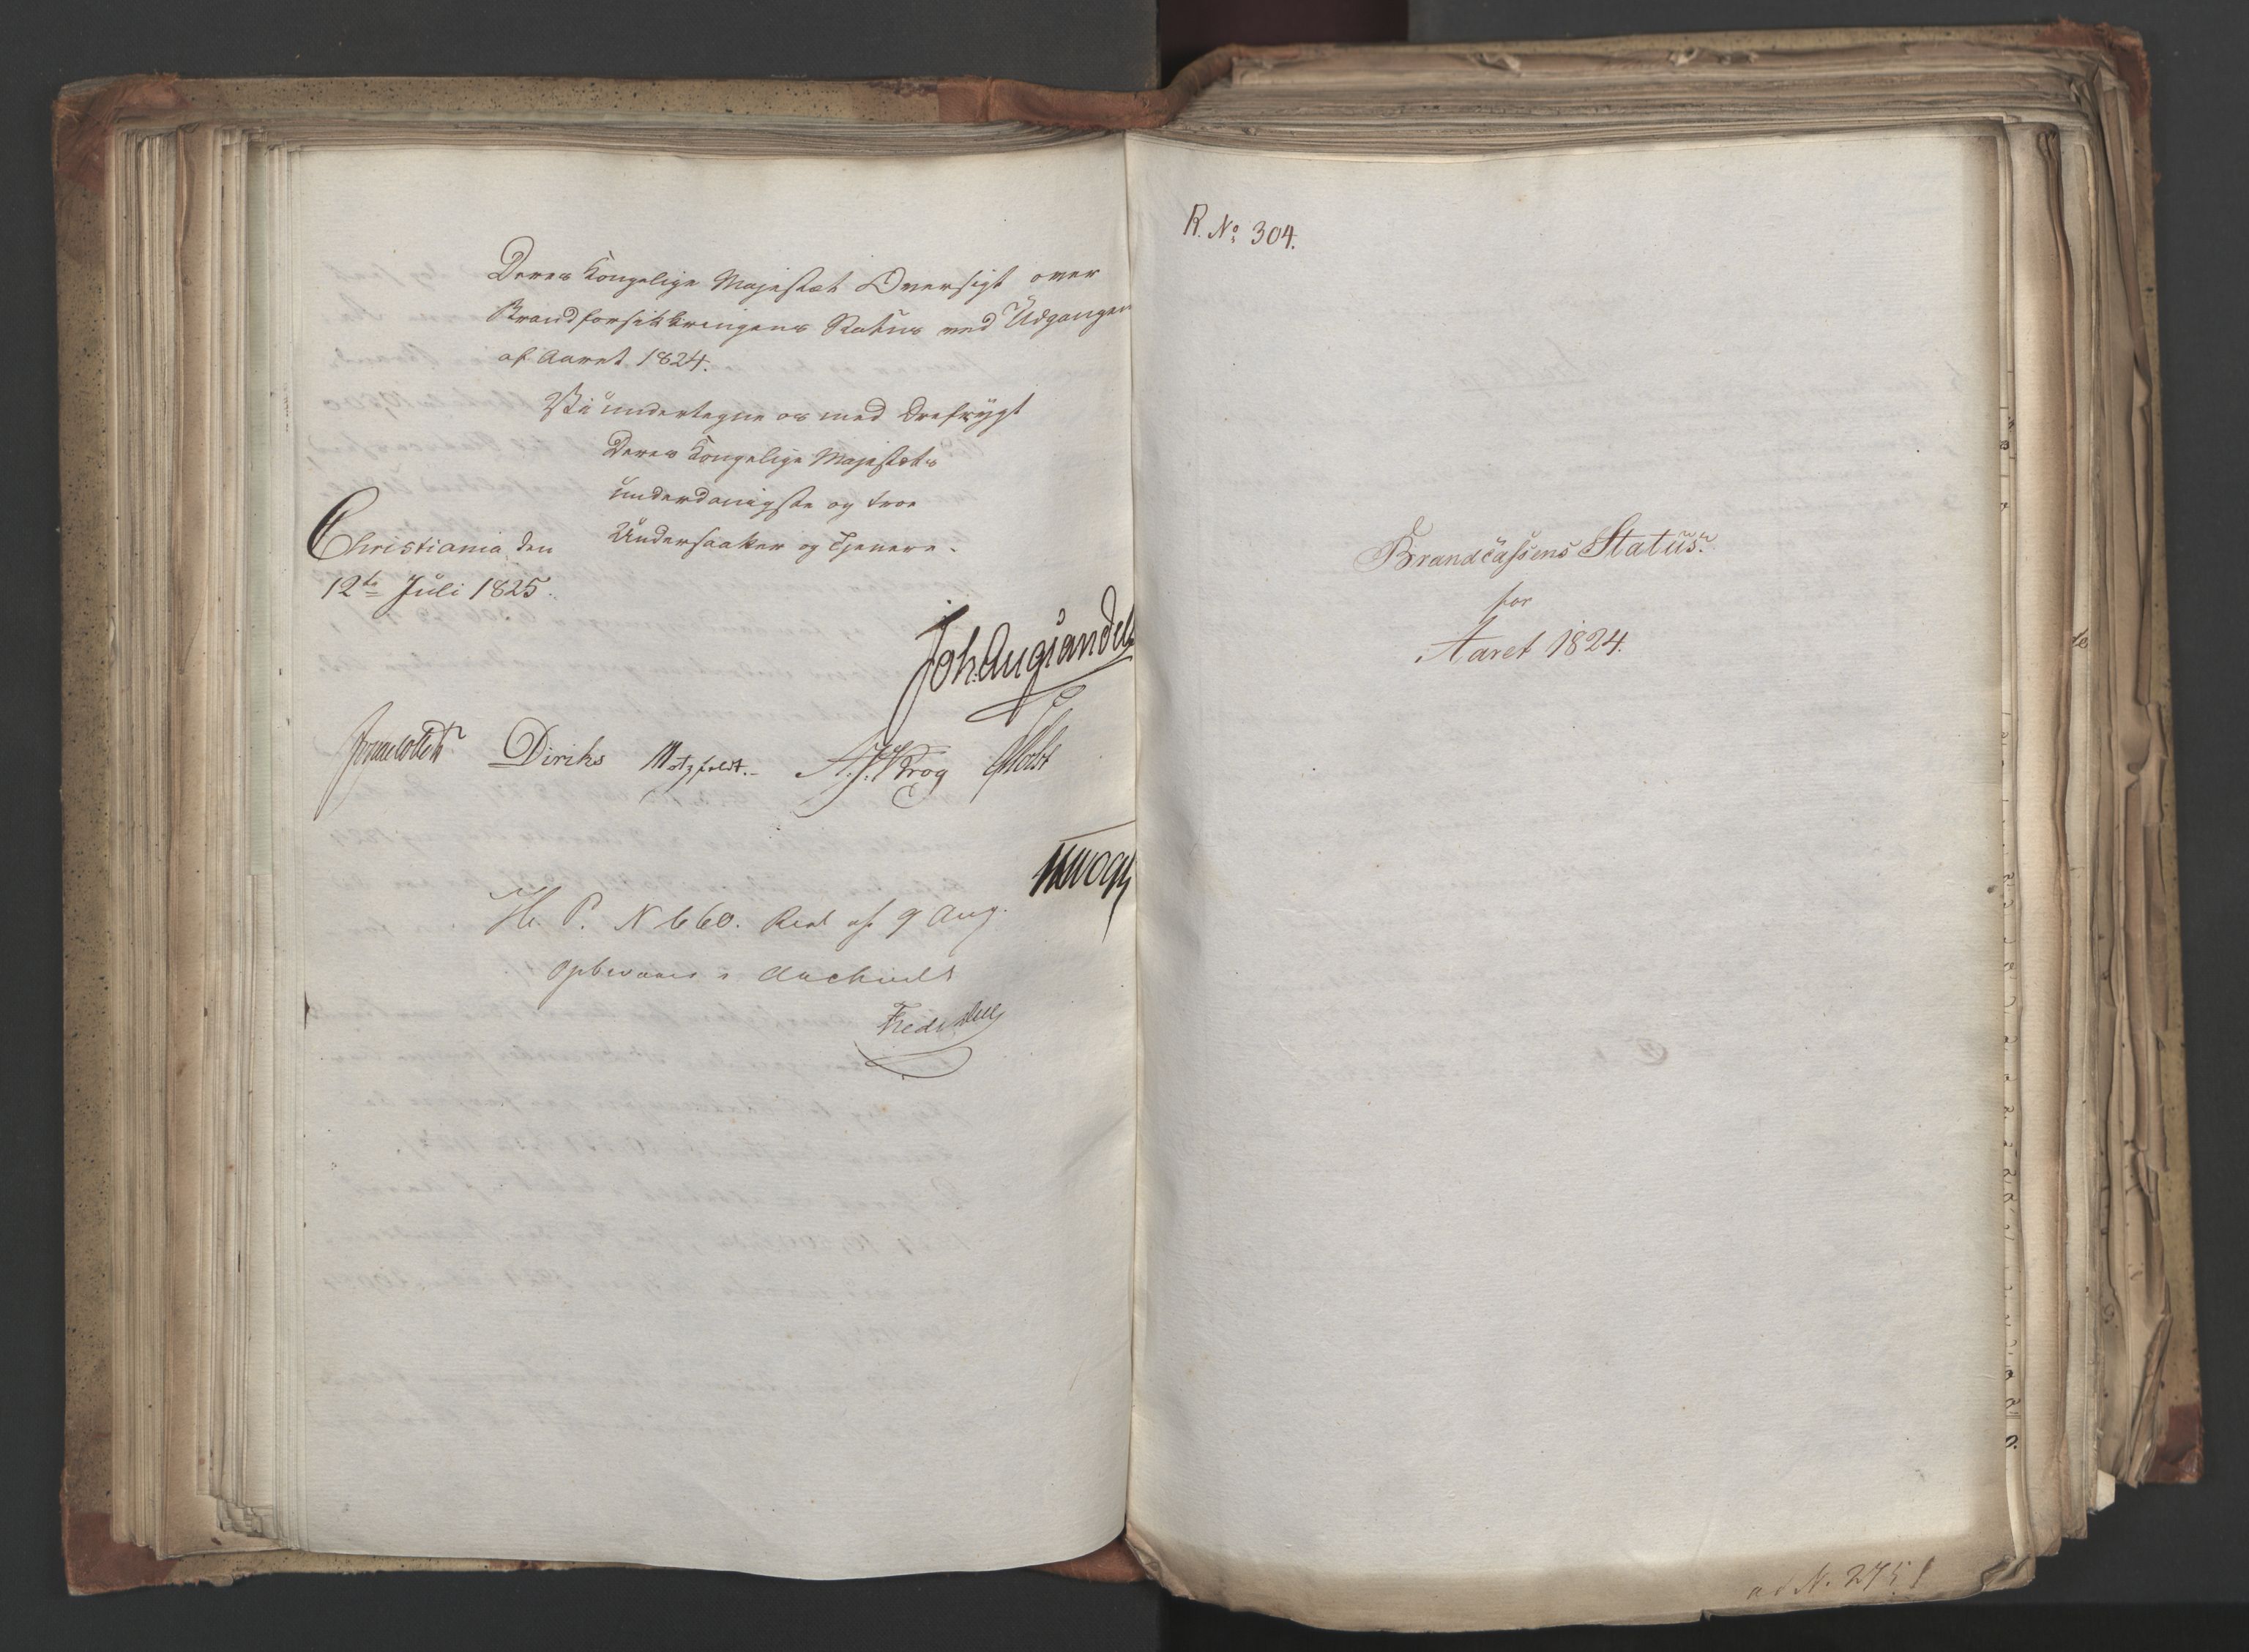 Deres Kongelige Majestæt Oversigt over
Brandforsikkringens Status ved Udgangen
af Aaret 1824.
Vi undertegne os med Ærefrygt
Deres Kongelige Majestæts
underdanigste og troe
Undersaatter og Tjenere.
Christiania den
12te Juli 1825.
Joh. Aug: Sandels
Collett Diriks Motzfeldt. A. J. Krog Holst
H. P. N 660. Res af 9 Aug.
Opbevares i Archivet
R. No 304.
Brandcassens Status
for
Aaret 1824.
ad N. 275